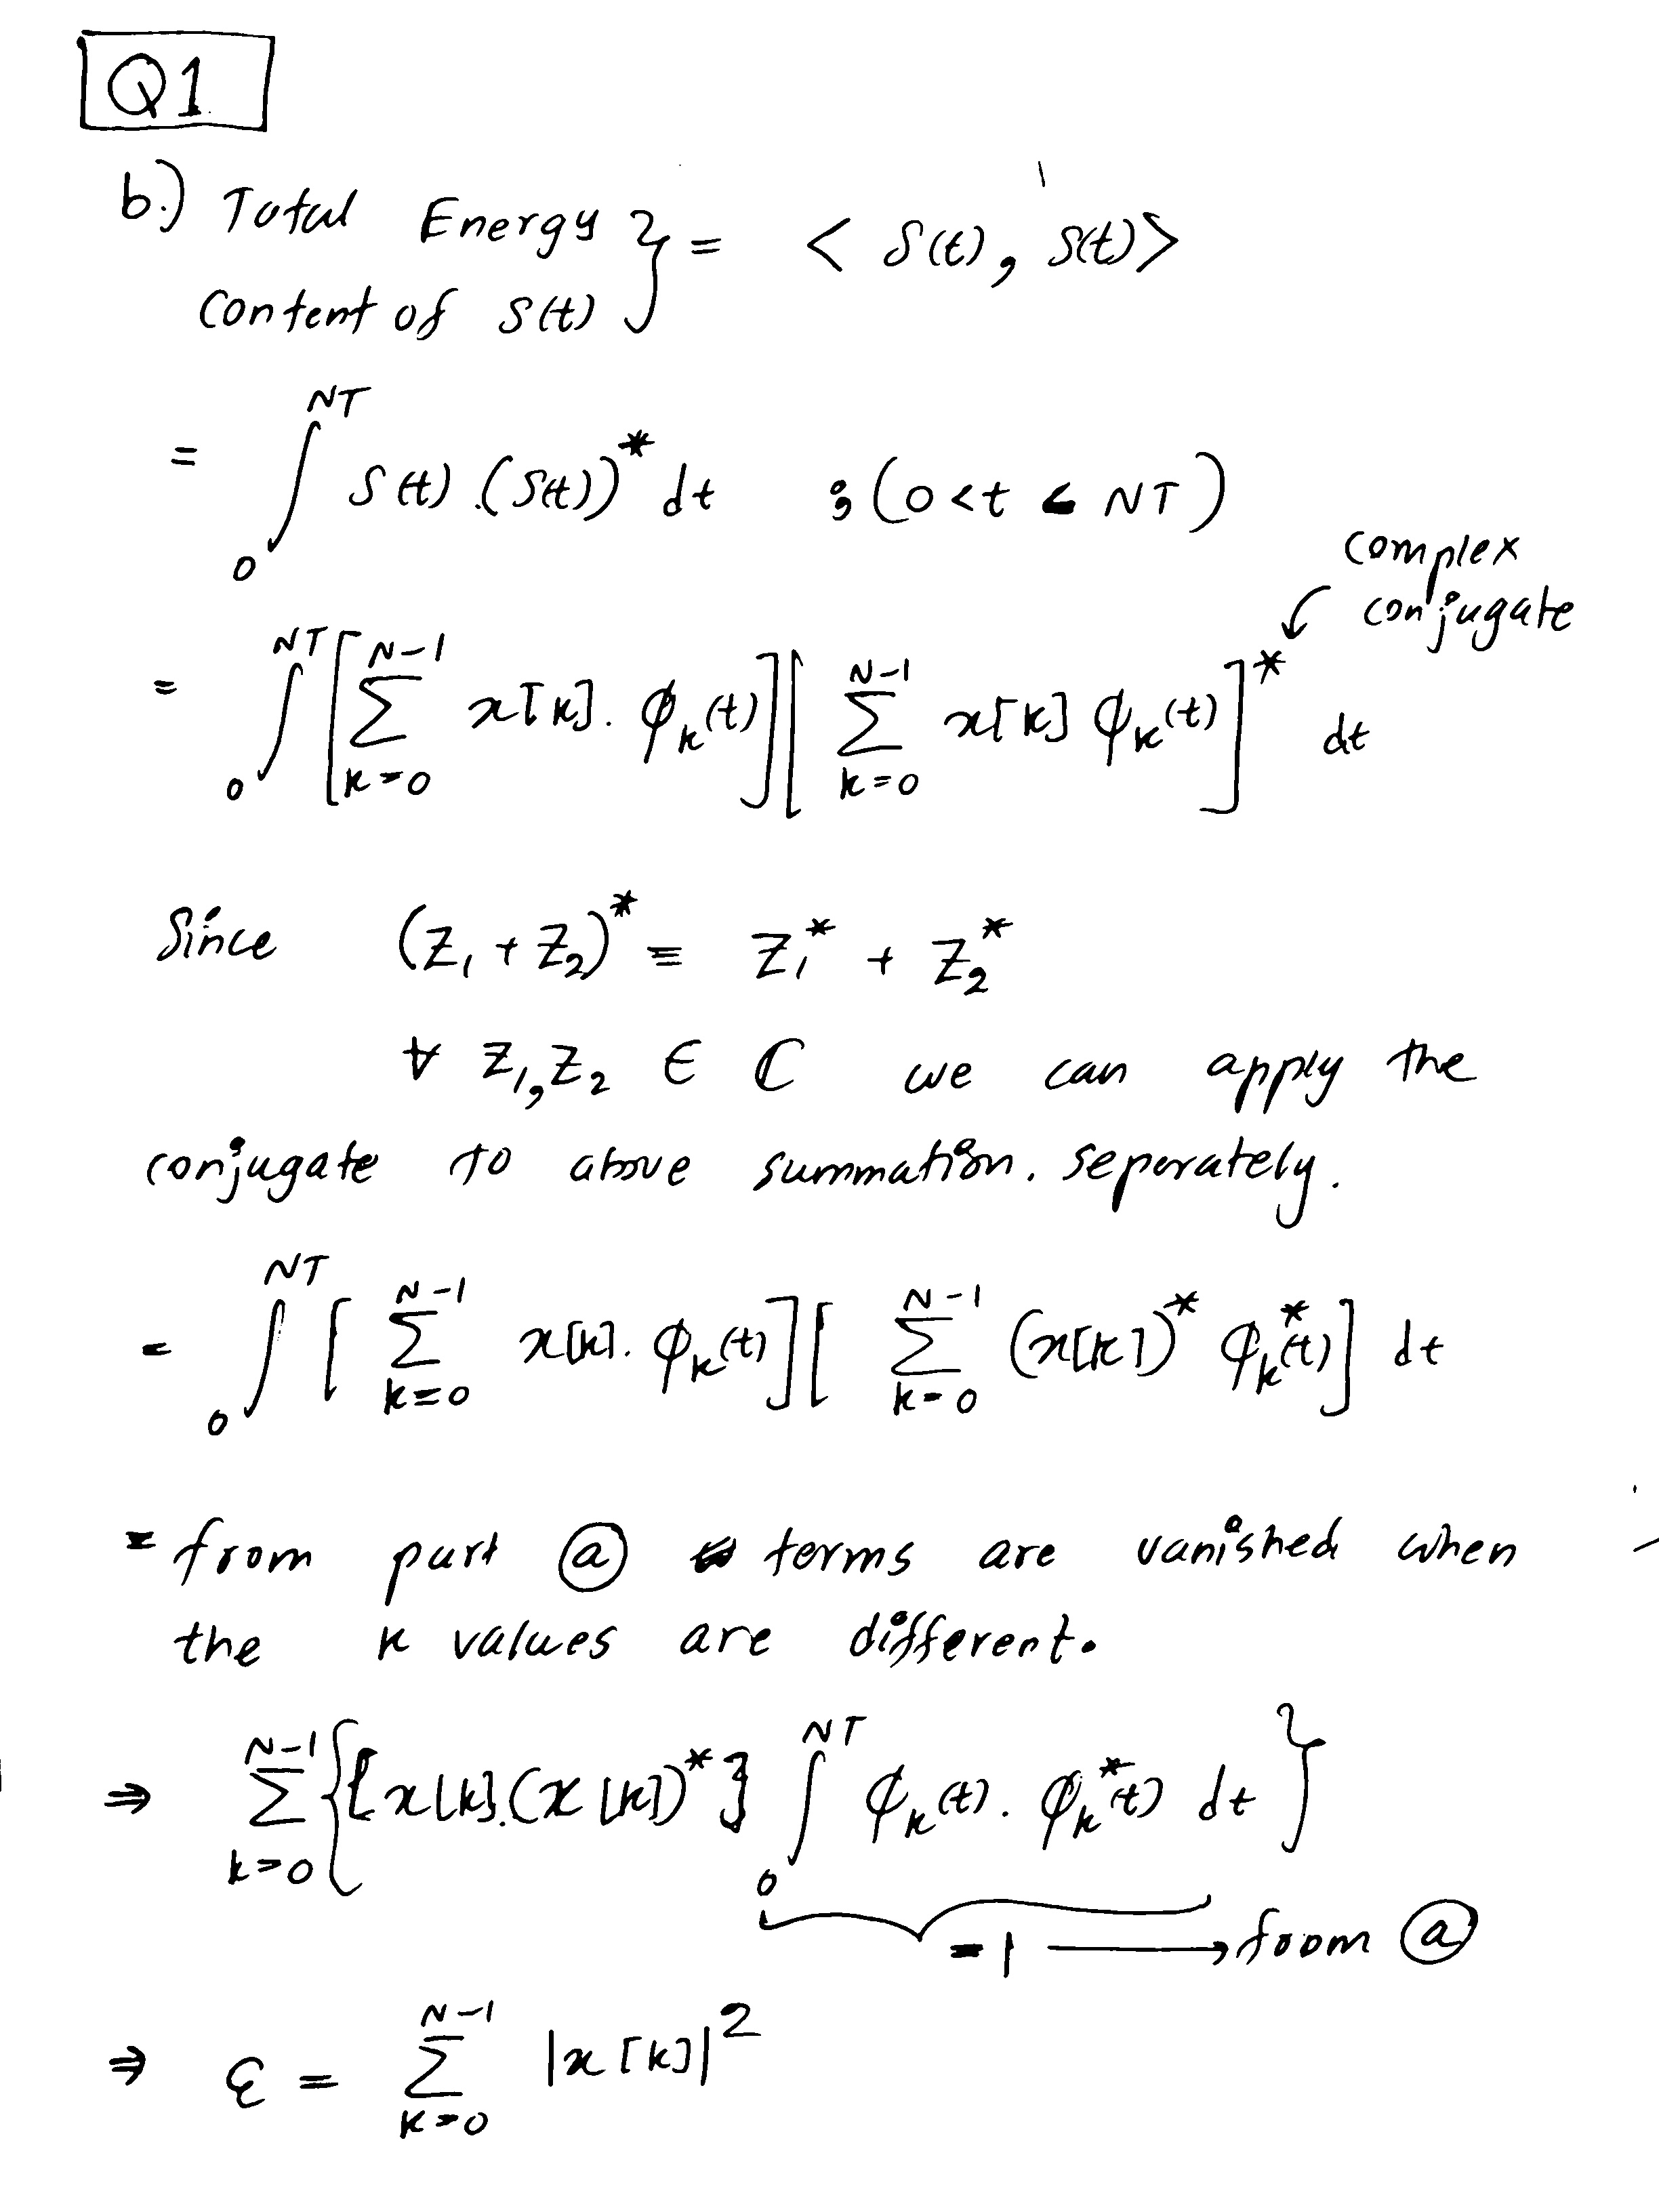 Q1
b.) Total Energy content of S(t) } = < S(t), S(t)>
= ∫_0^{NT} S(t).(S(t))^* dt ; (0<t<NT)
complex conjugate
= ∫_0^{NT} [ ∑_{k=0}^{N-1} x[k]. φ_k(t) ] [ ∑_{k=0}^{N-1} x[k] φ_k(t) ]^* dt
Since (Z_1 + Z_2)^* = Z_1^* + Z_2^*
∀ Z_1, Z_2 ∈ ℂ we can apply the
conjugate to above summation. seperately.
= ∫_0^{NT} [ ∑_{k=0}^{N-1} x[k]. φ_k(t) ] [ ∑_{k=0}^{N-1} (x[k])^* φ_k^*(t) ] dt
= from part ⓐ terms are vanished when
the k values are different.
⇒ ∑_{k=0}^{N-1} { [x[k].(x[k])^*] ∫_0^{NT} φ_k(t). φ_k^*(t) dt }
=1 → from ⓐ
⇒ ℰ = ∑_{k=0}^{N-1} |x[k]|^2